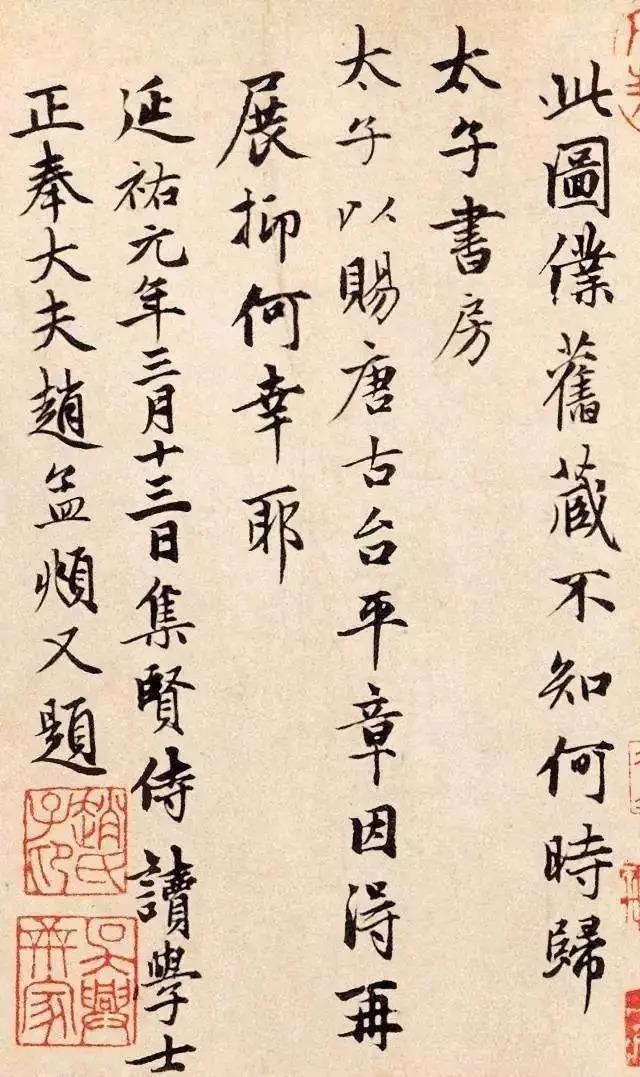 此圖僕舊藏不知何時歸
太子書房
太子以賜唐古台平章因得再
展抑何幸耶
延祐元年三月十三日集賢侍讀學士
正奉大夫趙孟頫又題
趙氏子卬